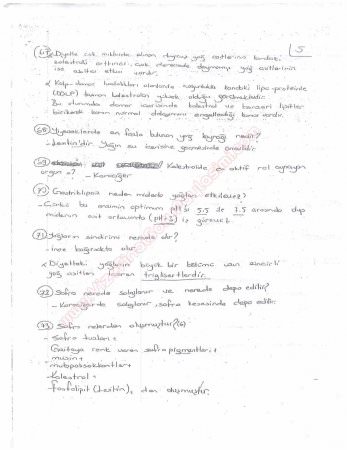 5
67) Diyette çok miktarda alınan doymuş yağ asitlerinin kandaki
kolesterolü arttırıcı, çok dereceede doymamış yağ asitlerinin
ise azaltıcı etkisi vardır.
* Kalp-damar hastalıkları olanlarda lipo proteinle
bunun kolesterolün yüksek olduğu görülmektedir.
Bu durumda damar içerisinde kolesterol ve benzeri lipitler
birikerek kanın normal dolaşımını engellediği kanısı vardır.
68) Yiyeceklerde en fazla bulunan yağ kaynağı nedir?
- Lesitin'dir. Yağın su içerisine geçmesinde önemlidir.
69) Kolesterolde en aktif rol oynayan
organ =? - Karaciğer
70) Gastriklipaz neden midede yağları etkilemez?
- Çünkü bu enzimin optimum pH'sı 5.5 ile 7.5 arasında olup
midenin asit ortamında (pH=3) iş göremez.
71) Yağların sindirimi nerede olur?
- İnce bağırsakta olur.
* Diyetteki yağların büyük bir bölümü uzun zincirli
yağ asitleri içeren trigliseritlerdir.
72) Safra nerede salgılanır ve nerede depo edilir?
- Karaciğerde salgılanır, safra kesesinde depo edilir.
73) Safra nelerden oluşmuştur? (6)
- Safra tuzları +
Gaitaya renk veren safra pigmentleri +
- müsin +
- mukopolisakkaritler +
- Kolesterol +
- Fosfolipit (Lesitin), den oluşmuştur.